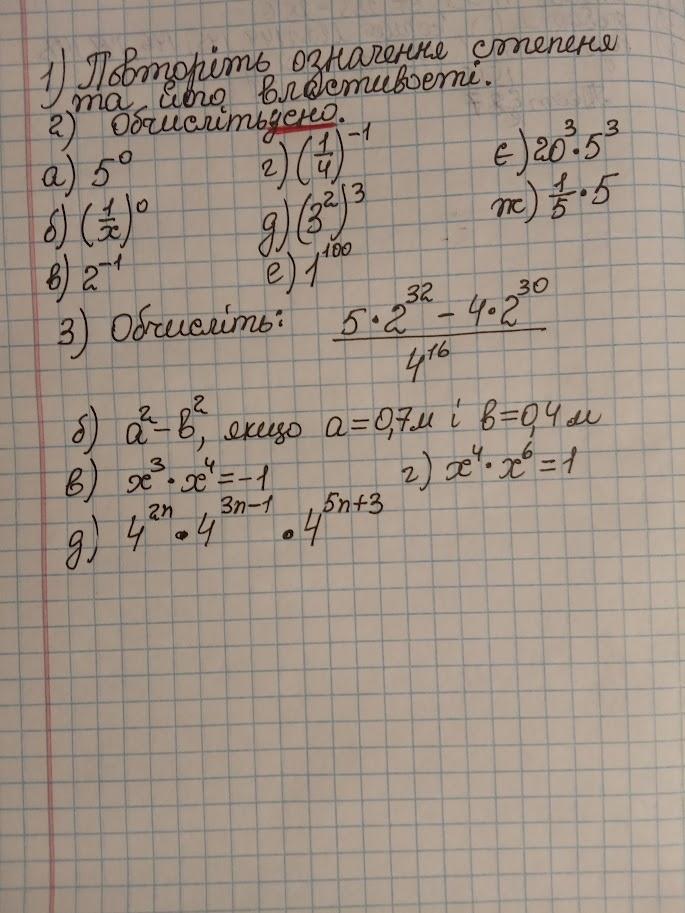 1) Повторіть означення степеня
та його властивості.
2) Обчислітьусно.
а) 5⁰ г) (1/4)⁻¹ є) 20³·5³
б) (1/x)⁰ д) (3²)³ ж) 1/5·5
в) 2⁻¹ е) 1¹⁰⁰
3) Обчисліть: (5·2³² − 4·2³⁰)/4¹⁶
б) a²−b², якщо a=0,7м і b=0,4м
в) x³·x⁴=−1 г) x⁴·x⁶=1
д) 4²ⁿ·4³ⁿ⁻¹·4⁵ⁿ⁺³